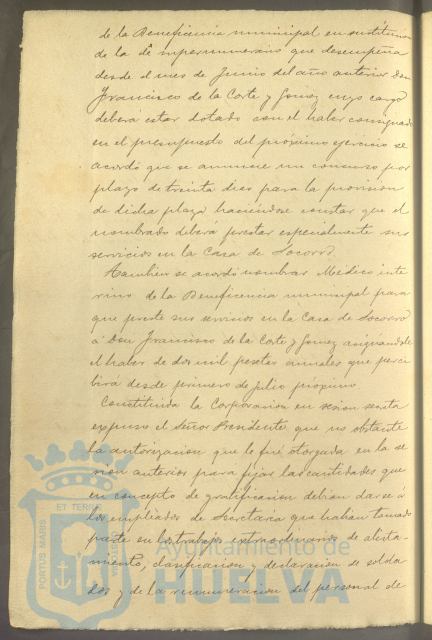 de la Beneficencia municipal en sustitucion
de la de supernumerario que desempeña
desde el mes de Junio del año anterior Don
Francisco de la Corte y Gomez cuyo cargo
deberá estar dotado con el haber consignado
en el presupuesto del próximo ejercicio se
acordó que se anuncie un concurso por
plazo de treinta dias para la provision
de dicha plaza haciéndose constar que el
nombrado deberá prestar especialmente sus
servicios en la Casa de Socorro.
Tambien se acordó nombrar Médico inte
rino de la Beneficencia municipal para
que preste sus servicios en la Casa de Socorro
á Don Francisco de la Corte y Gomez asignandole
el haber de dos mil pesetas anuales que perci
birá desde primero de Julio próximo.
Constituida la Corporacion en sesion secreta
expuso el Señor Presidente que no obstante
la autorizacion que le fué otorgada en la se
sion anterior para fijar las cantidades que
en concepto de gratificacion debian darse á
los empleados de Secretaría que habian tomado
parte en los trabajos extraordinarios de alista-
miento, clasificacion y declaracion de solda-
dos y de la remuneracion del personal de
PORTUS MARIS ET TERRAE CUSTODIA
Ayuntamiento de
HUELVA